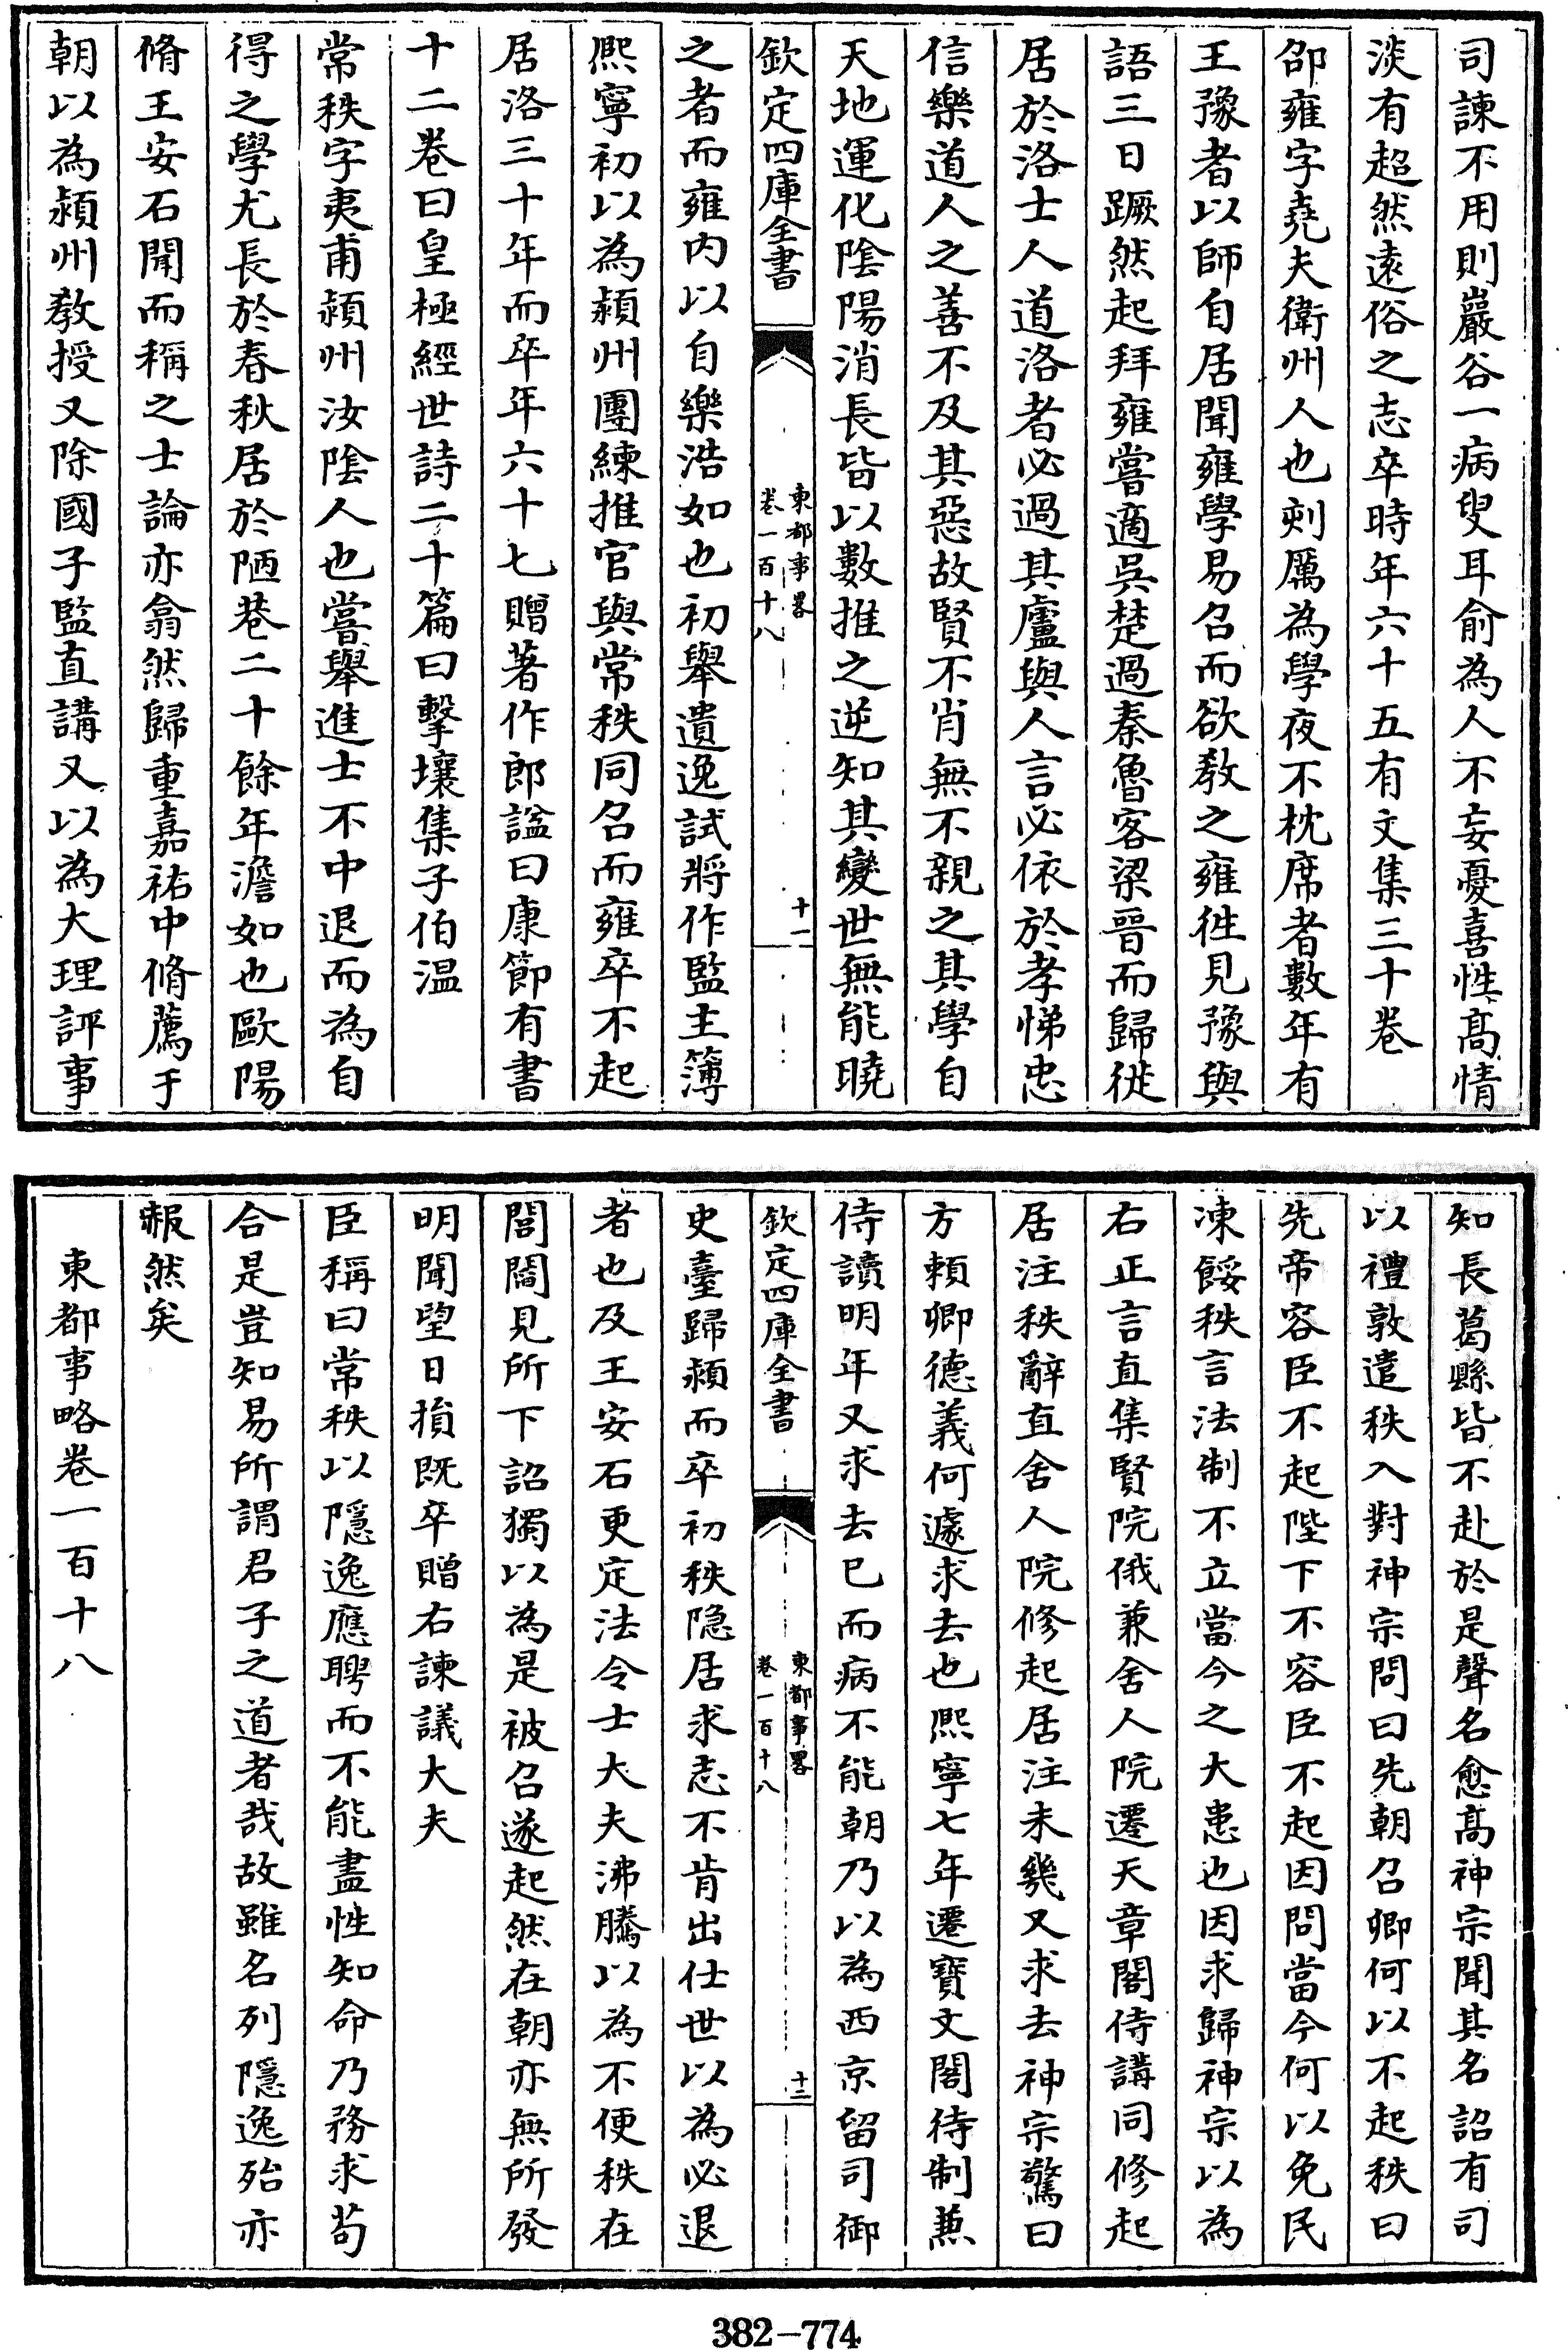 司諫不用則巖谷一病叟耳俞為人不妄憂喜性髙情
淡有超然逺俗之志卒時年六十五有文集三十卷
邵雍字堯夫衛州人也刻厲為學夜不枕席者數年有
王豫者以師自居聞雍學易召而欲教之雍徃見豫與
語三日蹶然起拜雍嘗適吳楚過秦魯客梁晉而歸徙
居於洛士人道洛者必過其廬與人言必依於孝悌忠
信樂道人之善不及其惡故賢不肖無不親之其學自
天地運化陰陽消長皆以數推之逆知其變世無能曉
欽定四庫全書
東都事畧
卷一百十八
十一
之者而雍内以自樂浩如也初舉遺逸試將作監主簿
熈寧初以為潁州團練推官與常秩同召而雍卒不起
居洛三十年而卒年六十七贈著作郎諡曰康節有書
十二卷曰皇極經世詩二十篇曰擊壤集子伯温
常秩字夷甫潁州汝隂人也嘗舉進士不中退而為自
得之學尤長於春秋居於陋巷二十餘年澹如也歐陽
脩王安石聞而稱之士論亦翕然歸重嘉祐中脩薦于
朝以為潁州教授又除國子監直講又以為大理評事
知長葛縣皆不赴於是聲名愈髙神宗聞其名詔有司
以禮敦遣秩入對神宗問曰先朝召卿何以不起秩曰
先帝容臣不起陛下不容臣不起因問當今何以免民
凍餒秩言法制不立當今之大患也因求歸神宗以為
右正言直集賢院俄兼舍人院遷天章閣侍講同修起
居注秩辭直舍人院修起居注未幾又求去神宗驚曰
方頼卿德義何遽求去也熈寧七年遷寶文閣待制兼
侍讀明年又求去已而病不能朝乃以為西京留司御
欽定四庫全書
東都事畧
卷一百十八
十二
史臺歸潁而卒初秩隐居求志不肯出仕世以為必退
者也及王安石更定法令士大夫沸騰以為不便秩在
閭閻見所下詔獨以為是被召遂起然在朝亦無所發
明聞望日損既卒贈右諫議大夫
臣稱曰常秩以隱逸應聘而不能盡性知命乃務求茍
合是豈知易所謂君子之道者哉故雖名列隱逸殆亦
赧然矣
東都事略卷一百十八
382-774